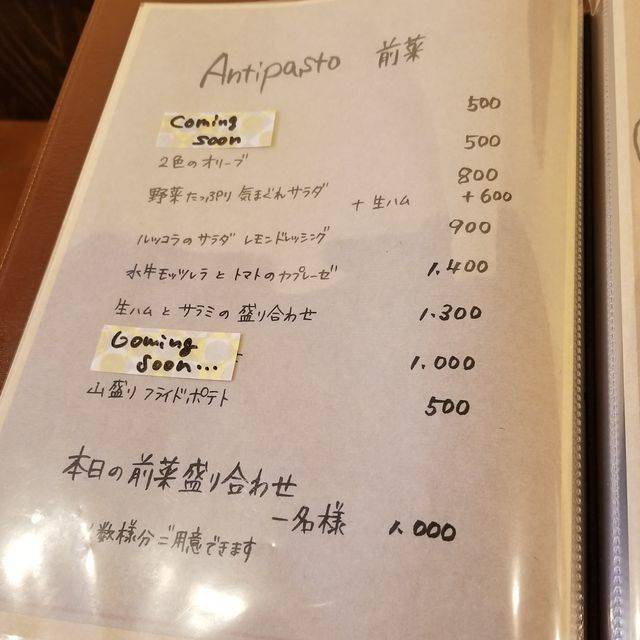 Antipasto 前菜
Coming soon 500
2色のオリーブ 500
野菜たっぷり 気まぐれサラダ 800
+ 生ハム + 600
ルッコラのサラダ レモンドレッシング 900
水牛モッツレラとトマトのカプレーゼ 1.400
生ハムとサラミの盛り合わせ 1.300
Coming soon... 1.000
山盛りフライドポテト 500
本日の前菜盛り合わせ
一名様 1.000
数様分ご用意できます